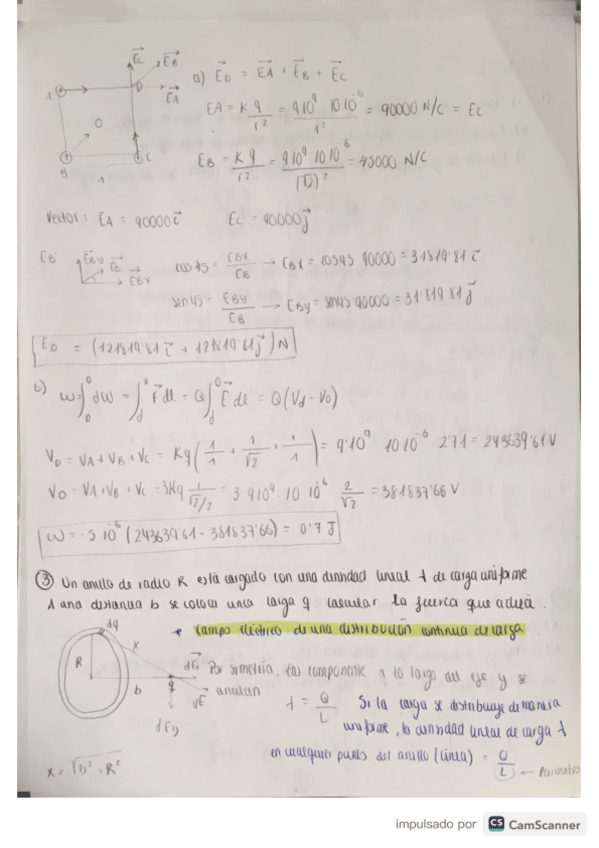 a) E⃗D = E⃗A + E⃗B + E⃗C
EA = K q / r² = 9 10⁹ 10 10⁻⁶ / 1² = 90000 N/C = EC
EB = K q / r² = 9 10⁹ 10 10⁻⁶ / (√2)² = 45000 N/C
A D O B C 1 E⃗C E⃗B E⃗A
Vector: EA = 90000 i⃗ EC = 90000 j⃗
EB E⃗By E⃗B E⃗Bx cos 45 = EBx / EB → EBx = cos45 90000 = 31819'81 i⃗
sen45 = EBy / EB → EBy = sen45 90000 = 31'819 81 j⃗
ED = (121819'81 i⃗ + 121819'61 j⃗) N
b) W = ∫ dW = ∫ F⃗ dl = Q ∫ E⃗ dl = Q (Vd - V0)
VD = VA + VB + VC = Kq (1/1 + 1/√2 + 1/1) = 9·10⁹ 10 10⁻⁶ 2 71 = 243639'61 V
VO = VA + VB + VC = 3Kq 1/(√2/2) = 3 9 10⁹ · 10 10⁻⁶ 2/√2 = 381837'66 V
W = -5 10⁻⁶ (243639'61 - 381837'66) = 0'7 J
③ Un anillo de radio R está cargado con una densidad lineal λ de carga uniforme
A una distancia b se coloca una carga q calcular la fuerza que actúa.
* campo eléctrico de una distribución continua de carga
dq x R b q dEy
Por simetría, las componente a lo largo del eje y se
anulan
λ = Q / L Si la carga se distribuye de manera
uniforme, la densidad lineal de carga λ
en cualquier punto del anillo (línea) = Q / L
x = √b² + R²
impulsado por CS CamScanner